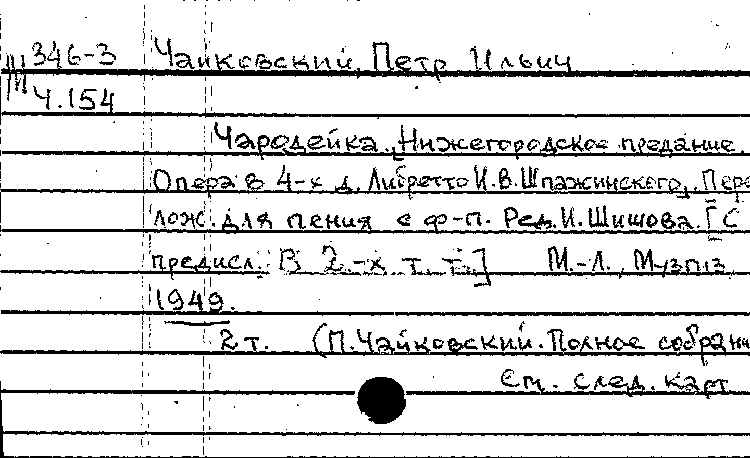 М 346-3 Чайковский, Петр Ильич
Ч.154
Чародейка. Нижегородское предание.
Опера в 4-х д. Либретто И.В.Шпажинского. Пере
лож. для пения с ф-п. Ред. И. Шишова. [С
предисл. В 2-х т. т.] М.-Л., Музгиз
1949.
2 т. (П. Чайковский. Полное собрани
См. след. карт